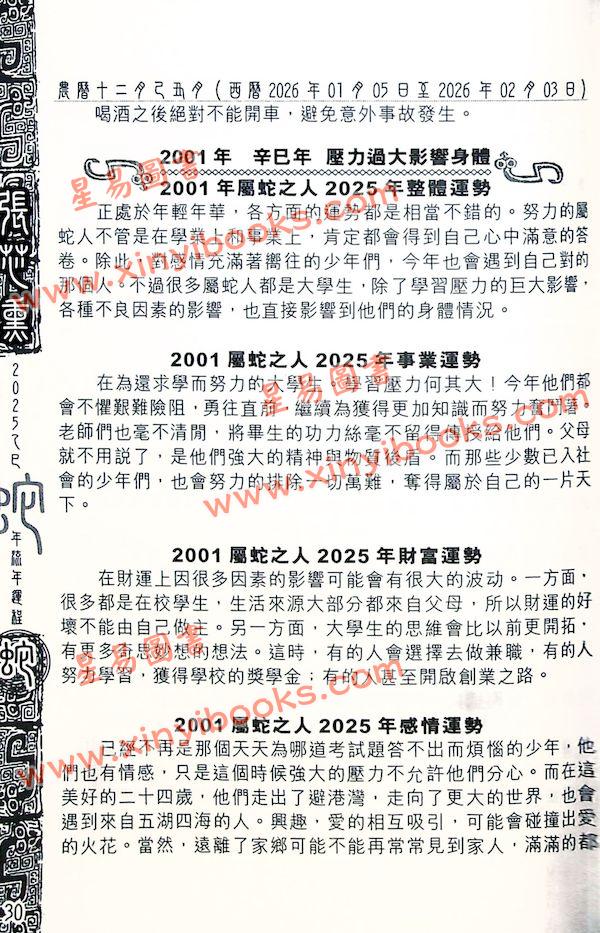 農曆十二月己丑月(西曆2026年01月05日至2026年02月03日)
喝酒之後絕對不能開車,避免意外事故發生。
2001年 辛巳年 壓力過大影響身體
2001年屬蛇之人2025年整體運勢
正處於年輕年華,各方面的運勢都是相當不錯的。努力的屬
蛇人不管是在學業上和事業上,肯定都會得到自己心中滿意的答
卷。除此,對感情充滿著嚮往的少年們,今年也會遇到自己對的
那個人。不過很多屬蛇人都是大學生,除了學習壓力的巨大影響,
各種不良因素的影響,也直接影響到他們的身體情況。
2001屬蛇之人2025年事業運勢
在為還求學而努力的大學生。學習壓力何其大!今年他們都
會不懼艱難險阻,勇往直前,繼續為獲得更加知識而努力奮鬥著。
老師們也毫不清閒,將畢生的功力絲毫不留得傳授給他們。父母
就不用說了,是他們強大的精神與物質後盾。而那些少數已入社
會的少年們,也會努力的排除一切萬難,奪得屬於自己的一片天
下。
2001屬蛇之人2025年財富運勢
在財運上因很多因素的影響可能會有很大的波动。一方面,
很多都是在校學生,生活來源大部分都來自父母,所以財運的好
壞不能由自己做主。另一方面,大學生的思維會比以前更開拓,
有更多奇思妙想的想法。這時,有的人會選擇去做兼職,有的人
努力學習,獲得學校的獎學金;有的人甚至開啟創業之路。
2001屬蛇之人2025年感情運勢
已經不再是那個天天為哪道考試題答不出而煩惱的少年,他
們也有情感,只是這個時候強大的壓力不允許他們分心。而在這
美好的二十四歲,他們走出了避港灣,走向了更大的世界,也會
遇到來自五湖四海的人。興趣,愛的相互吸引,可能會碰撞出愛
的火花。當然,遠離了家鄉可能不能再常常見到家人,滿滿的都
2025乙巳
蛇
年流年運程
30
星易圖書
www.xinyibooks.com
星易圖書
www.xinyibooks.com
星易圖書
www.xinyibooks.com